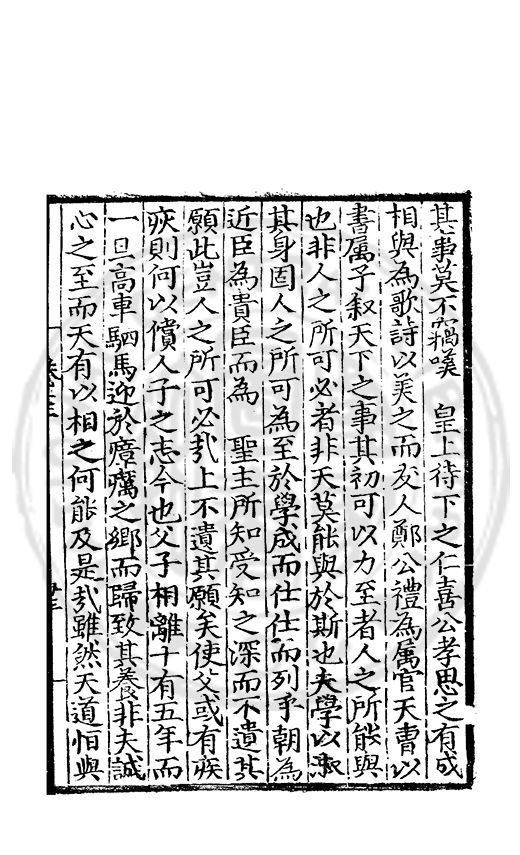 其事莫不竊嘆　皇上待下之仁喜公孝思之有成
相與為歌詩以美之而友人鄭公禮為属官天曹以
書属予叙天下之事其初可以力至者人之所能與
也非人之所可必者非天莫能與於斯也夫學以淑
其身固人之所可為至於學成而仕仕而列乎朝為
近臣為貴臣而為　聖主所知受知之深而不遺其
願此豈人之所可必㢤上不遺其願矣使父或有疾
疾則何以償人子之志今也父子相離十有五年而
一旦高車駟馬迎於瘴癘之鄉而歸致其養非夫誠
心之至而天有以相之何能及是㢤雖然天道恒與